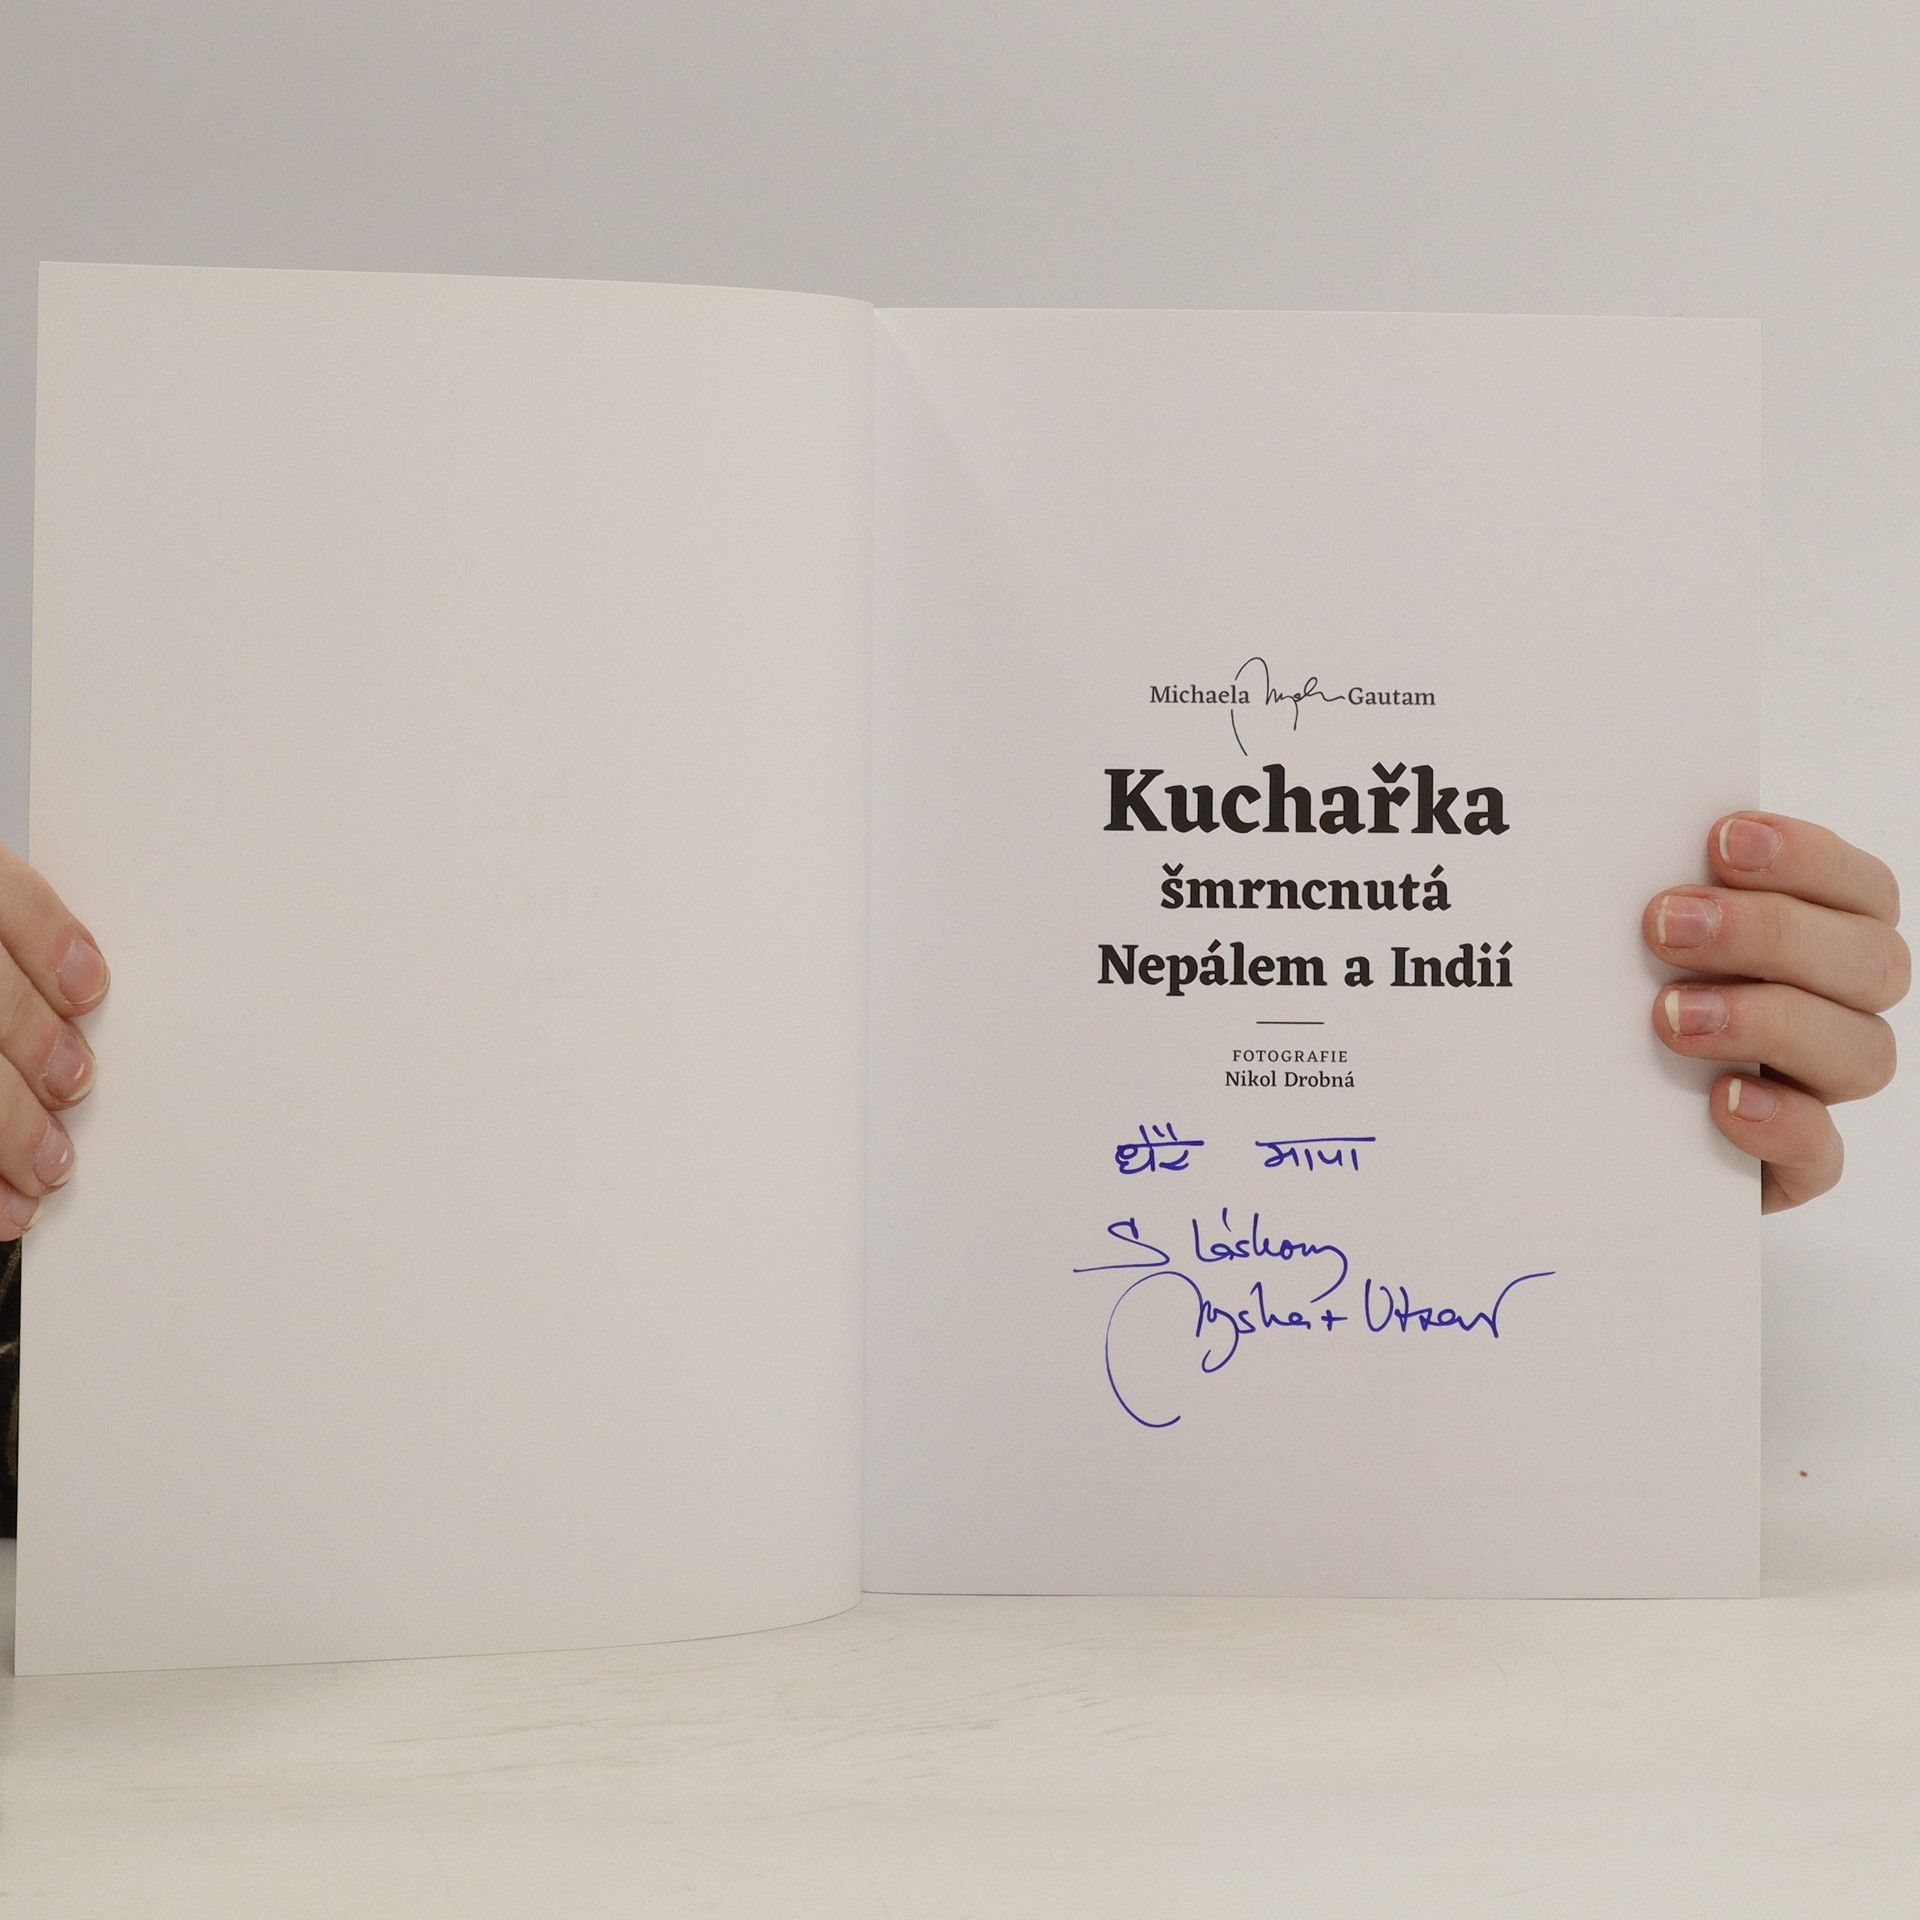 Michaela Mysha Gautam
Kuchařka
šmrncnutá
Nepálem a Indií
FOTOGRAFIE
Nikol Drobná
धेरै माया
S láskou
Mysha + Utsav